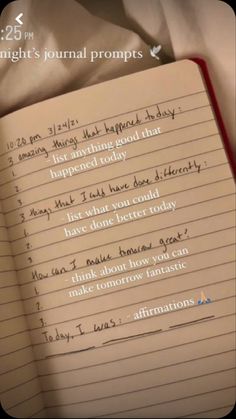 :25 PM
night's journal prompts 🕊
10:20 pm 3/24/21
3 amazing things that happened today:
- list anything good that
happened today
1.
2.
3.
3 things that I could have done differently:
- list what you could
have done better today
1.
2.
3.
How can I make tomorrow great?
- think about how you can
make tomorrow fantastic
1.
2.
3.
Today, I was: - affirmations 🙏🏻